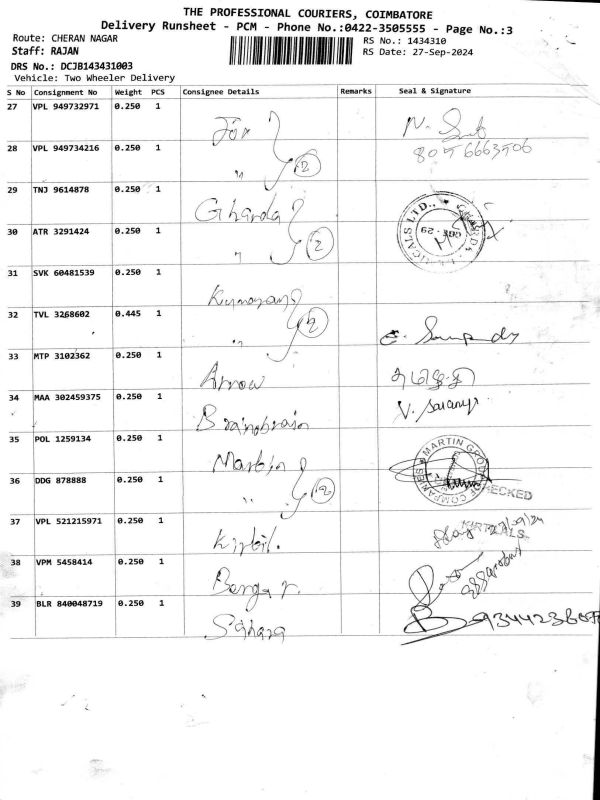 THE PROFESSIONAL COURIERS, COIMBATORE
Delivery Runsheet - PCM - Phone No.:0422-3505555 - Page No.:3
Route: CHERAN NAGAR RS No.: 1434310
Staff: RAJAN RS Date: 27-Sep-2024
DRS No.: DCJB143431003
Vehicle: Two Wheeler Delivery
S No Consignment No Weight PCS Consignee Details Remarks Seal & Signature
27 VPL 949732971 0.250 1
28 VPL 949734216 0.250 1 " 2
29 TNJ 9614878 0.250 1 Gharda
30 ATR 3291424 0.250 1 " 2
31 SVK 60481539 0.250 1
32 TVL 3268602 0.445 1 " 2
33 MTP 3102362 0.250 1 Arrow
34 MAA 302459375 0.250 1 Brainobrain V. Saranya
35 POL 1259134 0.250 1 Martin MARTIN GROUP OF COMPANIES CHECKED
36 DDG 878888 0.250 1 " 2
37 VPL 521215971 0.250 1
38 VPM 5458414 0.250 1
39 BLR 840048719 0.250 1 Sahara